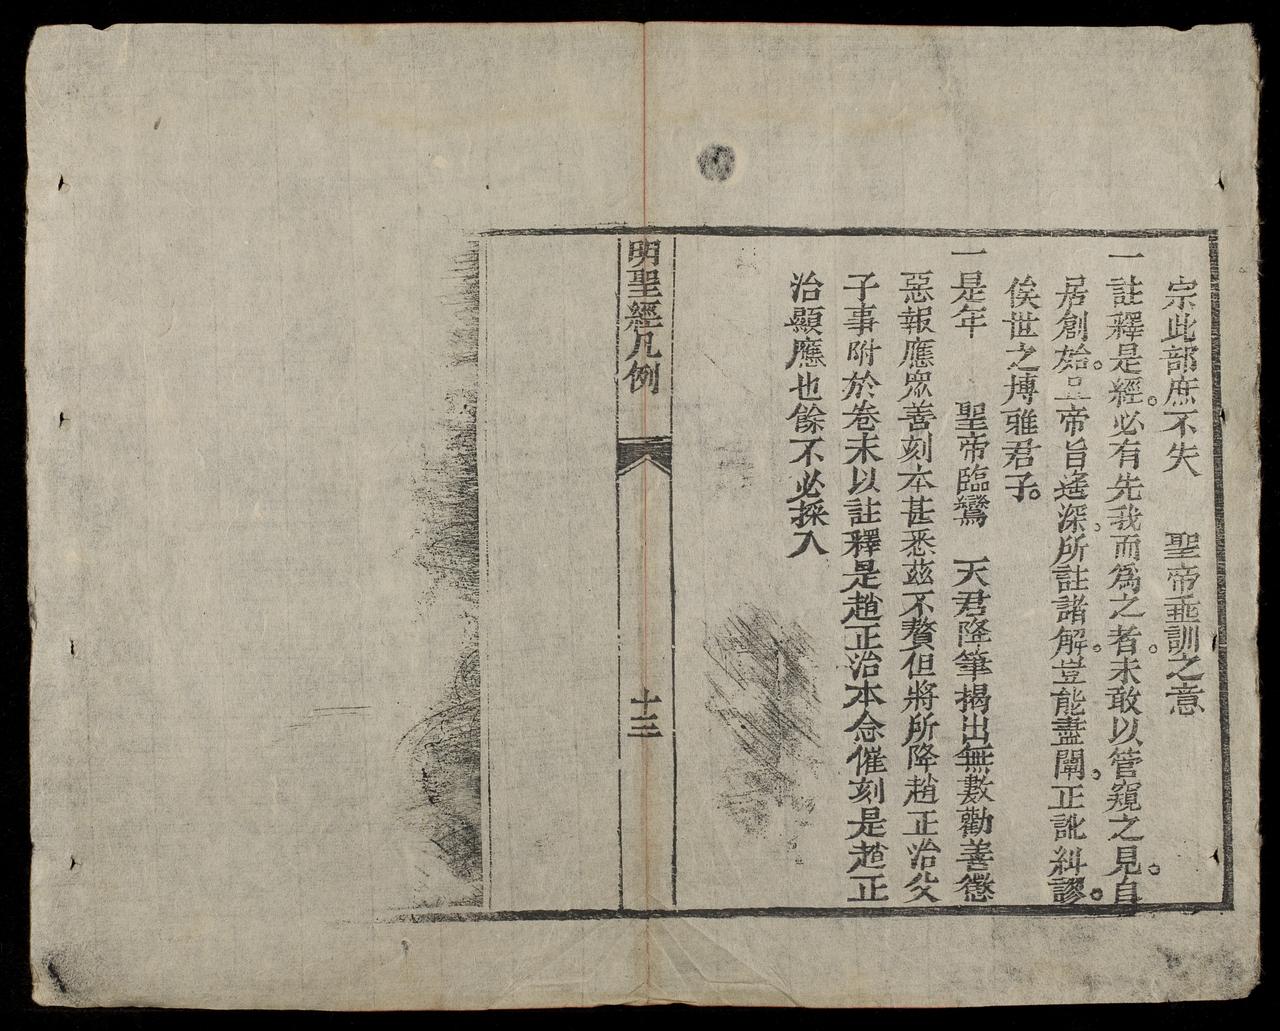 宗此部庶不失　聖帝垂訓之意
一註釋是經。必有先我而爲之者。未敢以管窺之見。自
居創始。且帝旨遙深。所註諸解。豈能盡闡。正訛糾謬。
俟世之博雅君子。
一是年　聖帝臨鸞　天君降筆揭出無數勸善懲
惡報應眾善刻本甚悉茲不贅但將所降趙正治父
子事附於卷末以註釋是趙正治本念催刻是趙正
治顯應也餘不必採入
明聖經凡例
十三